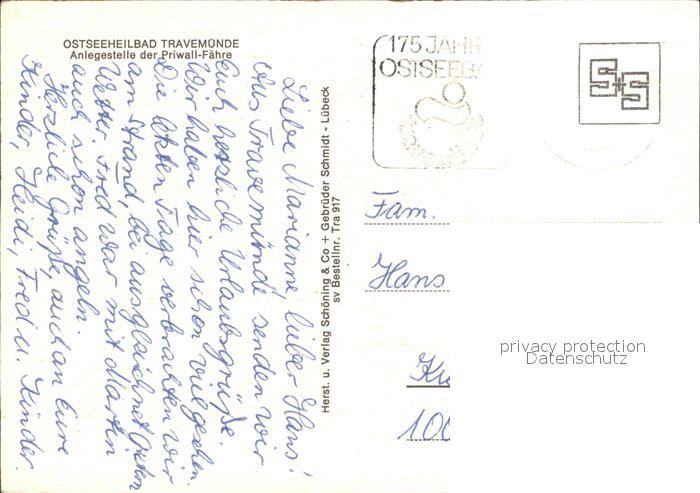 OSTSEEHEILBAD TRAVEMÜNDE
Anlegestelle der Priwall-Fähre
Liebe Marianne, lieber Hans!
Aus Travemünde senden wir
Euch herzliche Urlaubsgrüße.
Wir haben hier schon viel gesehen.
Die letzten Tage verbrachten wir
am Strand, bei ausgezeichnet guten
Wetter. Fred war mit Martin
auch schon angeln.
Herzliche Grüße, auch an Eure
Kinder, Heidi, Fred u. Kinder.
Herst. u. Verlag Schöning & Co + Gebrüder Schmidt - Lübeck
sv Bestellnr. Tra 917
175 JAHR
OSTSEEBA
S+S
Fam.
Hans
100
privacy protection
Datenschutz